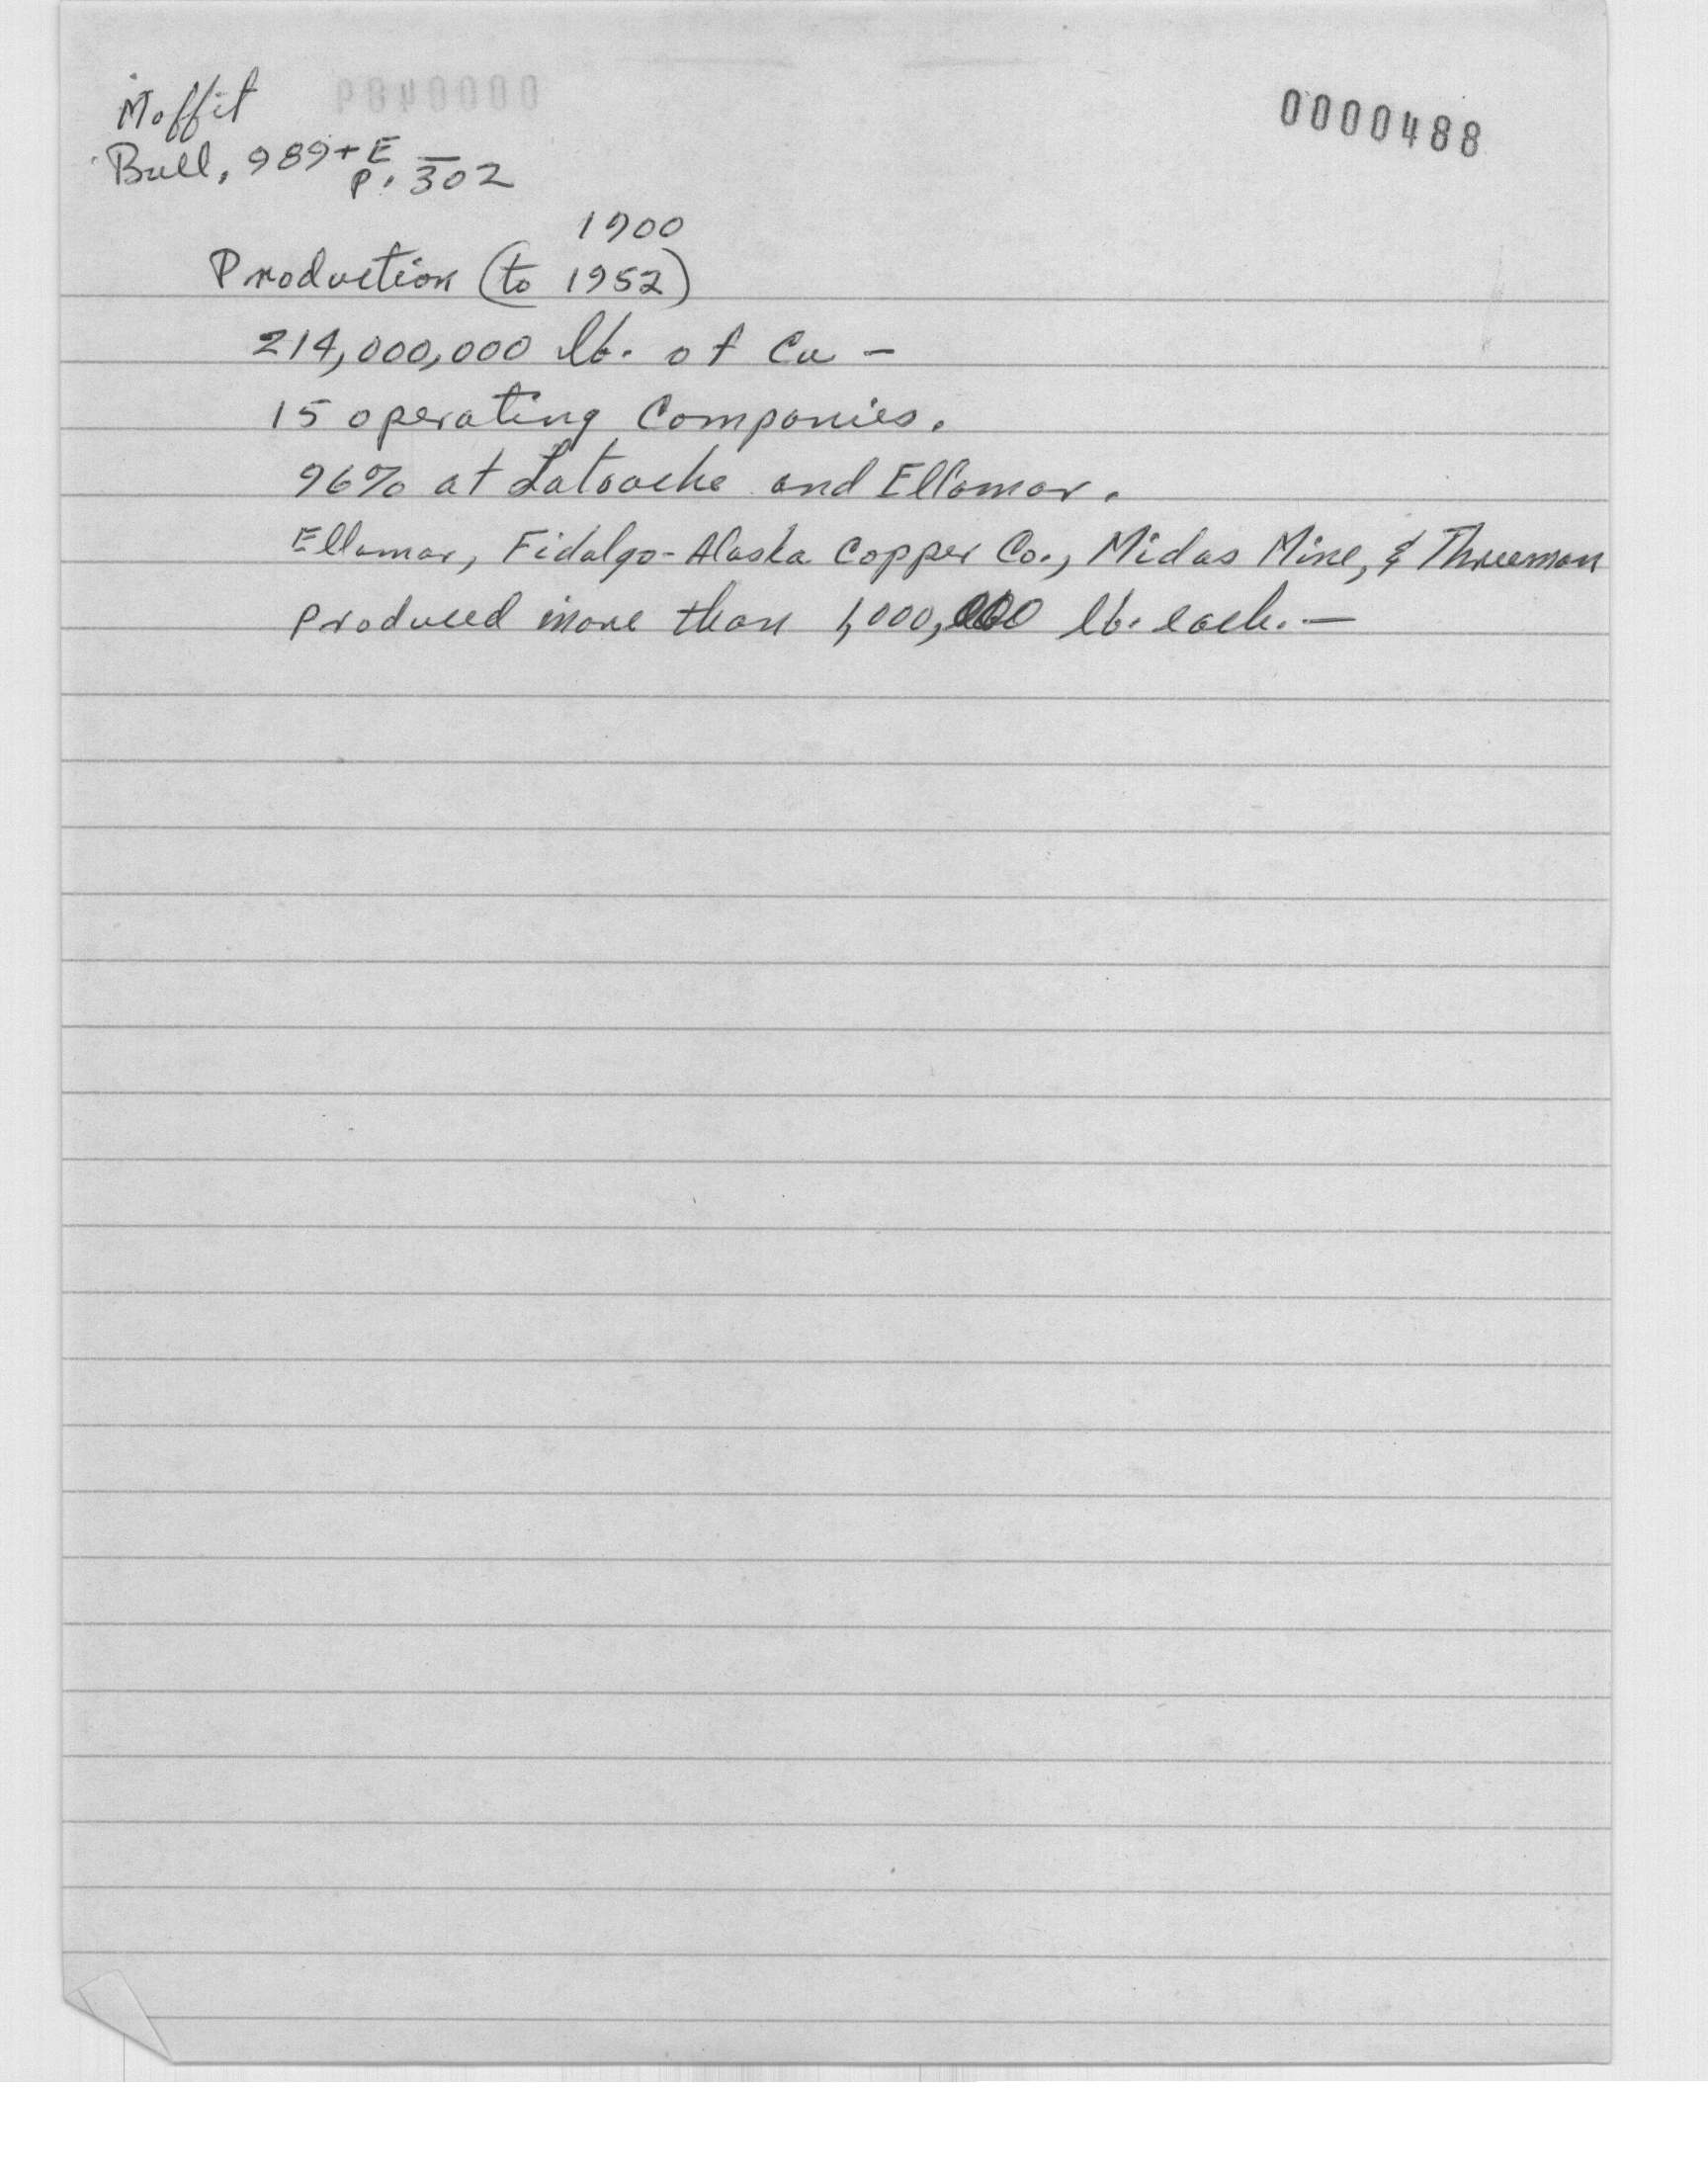 Moffit
0000488
Bull. 989-E
p. 302
1900
Production (to 1952)
214,000,000 lb. of Cu -
15 operating Companies.
96% at Latouche and Ellamar.
Ellamar, Fidalgo-Alaska Copper Co., Midas Mine, & Threeman
produced more than 1,000,000 lb. each. —